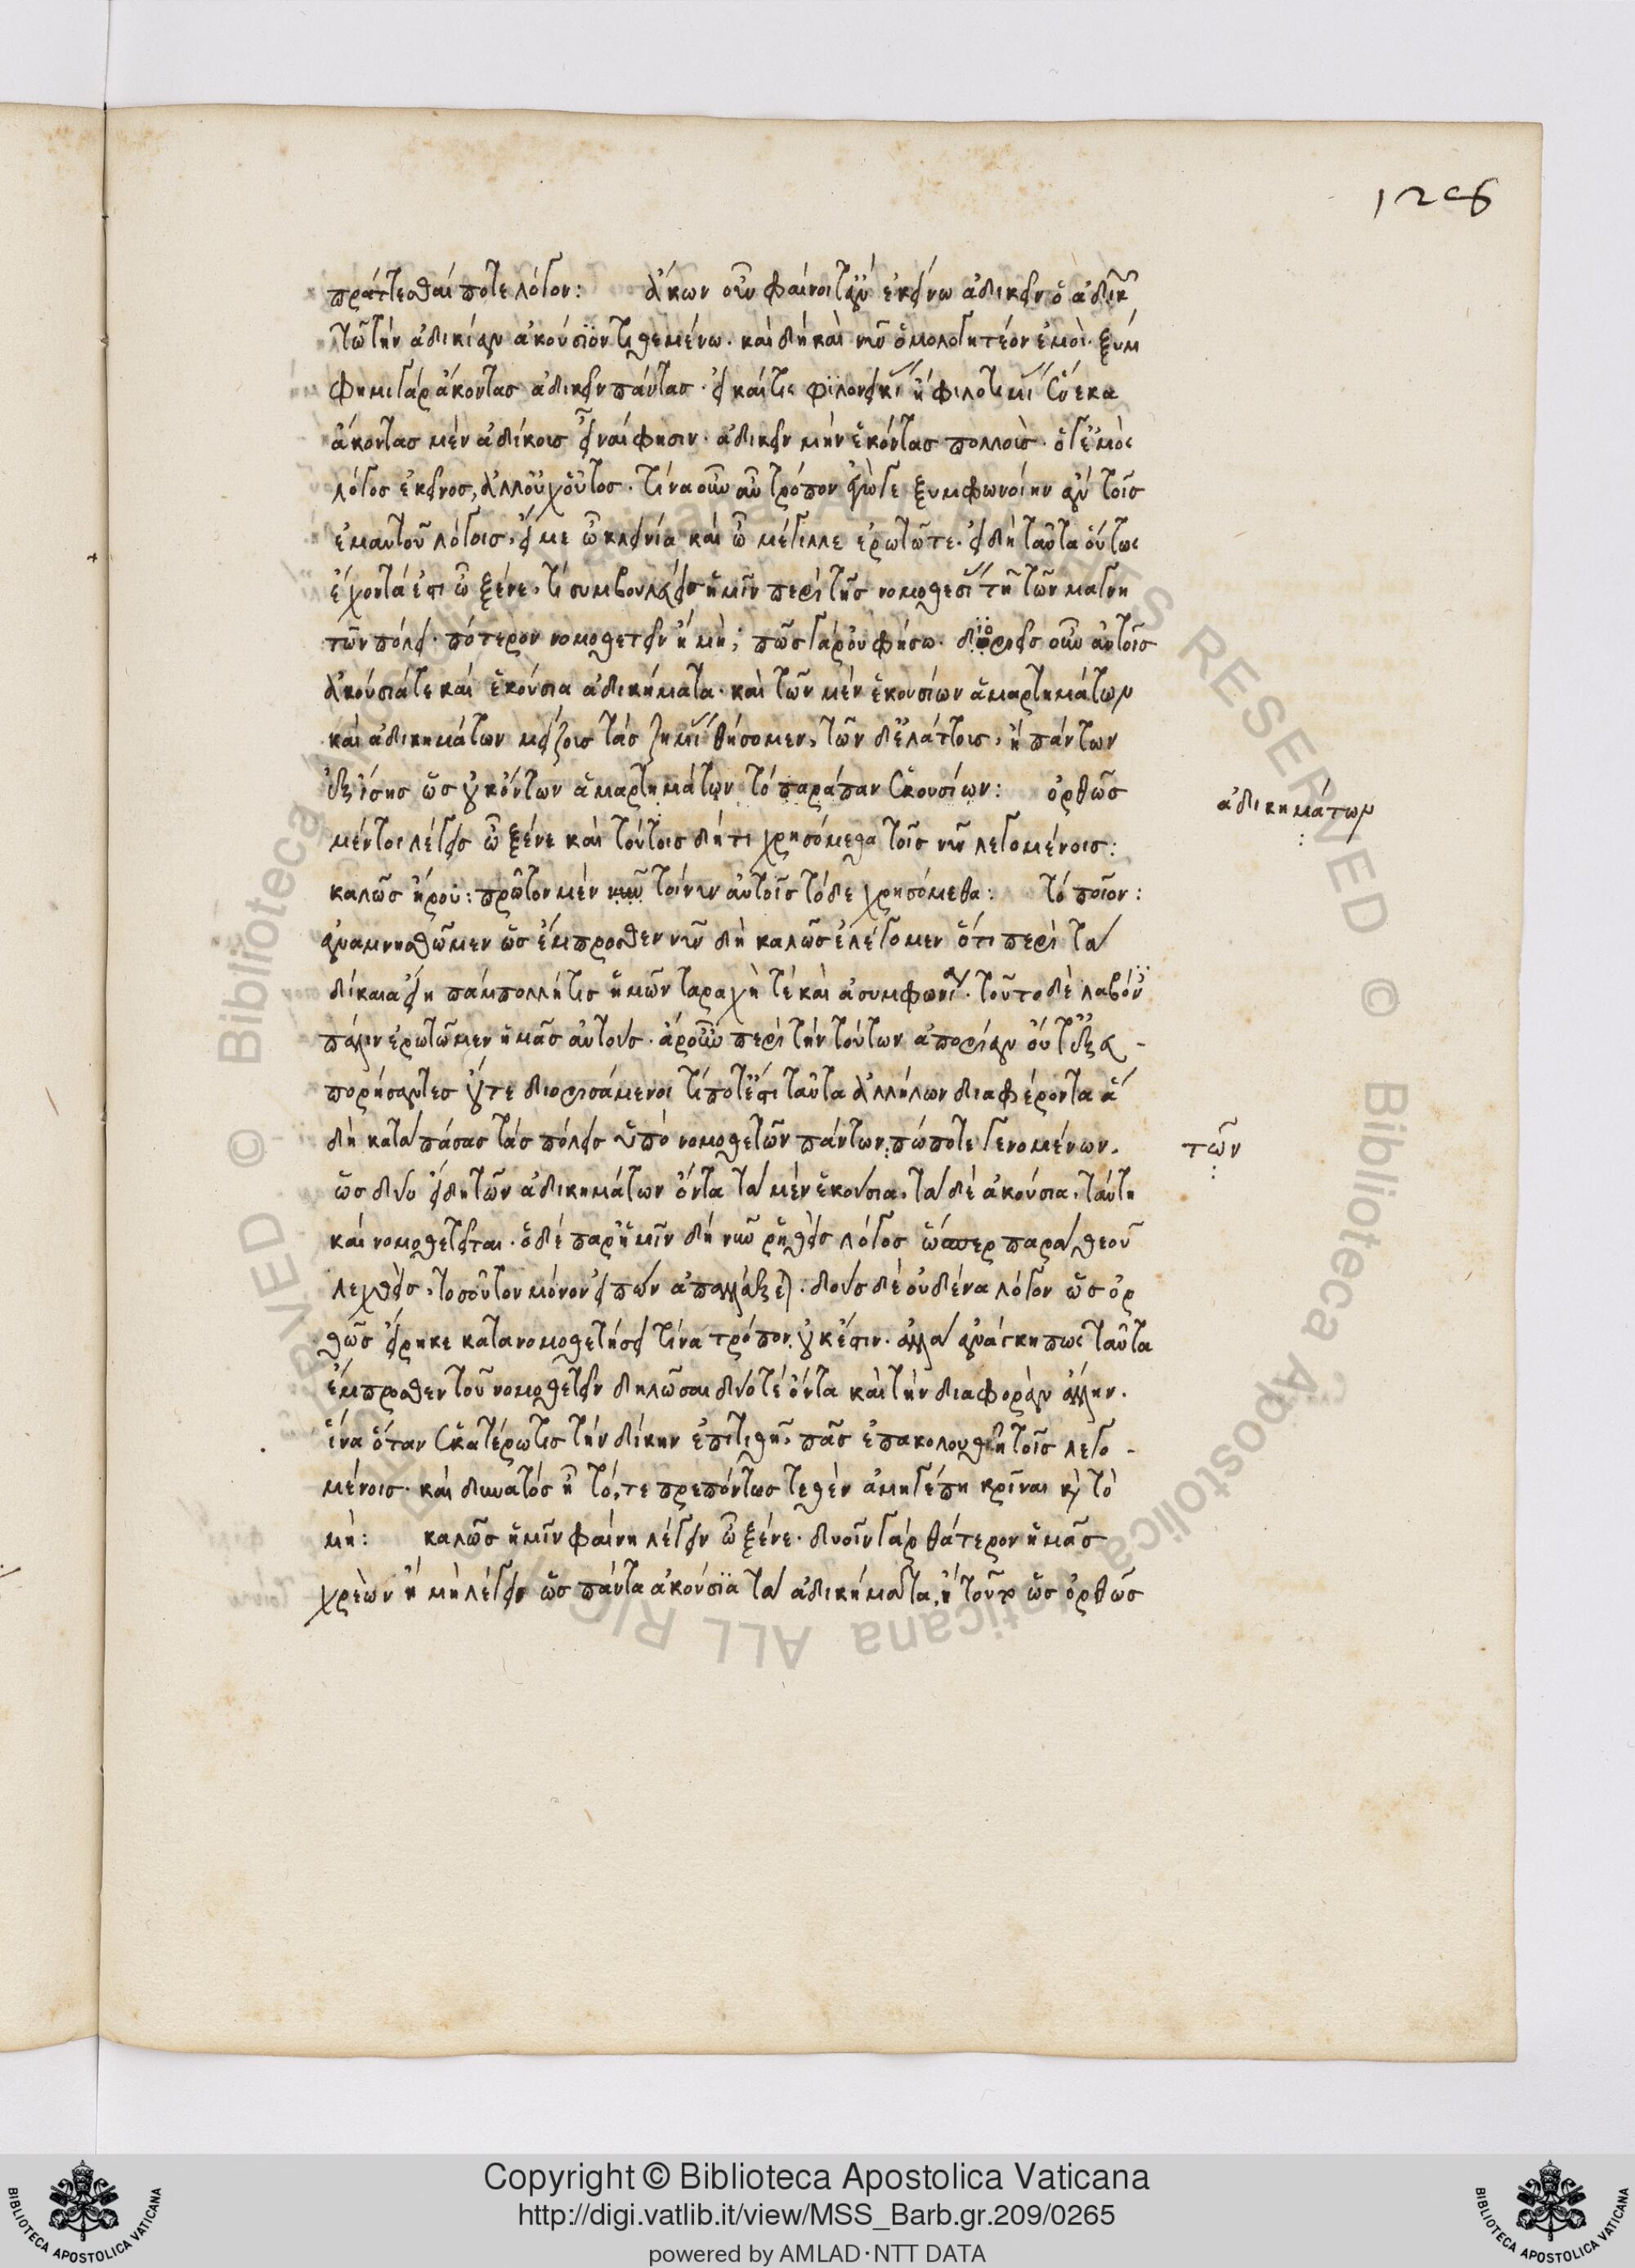 1206
πράττεσθαί ποτε λόγον: ἄκων οὖν φαίνοιτ' ἂν ἐκείνω ἀδικεῖν ὁ ἀδικῶν
τῶ τὴν ἀδικίαν ἀκούσϊον τιθεμένω. καὶ δὴ καὶ νῦν ὁμολογητέον ἐμοὶ. ξύμ
φημι γὰρ ἄκοντας ἀδικεῖν πάντας. εἰ καί τις φϊλονεικίας ἢ φιλοτιμίας ἕνεκα
ἄκοντας μὲν ἀδίκους εἶναί φησιν. ἀδικεῖν μὴν ἑκόντας πολλοὺς. ὅ γ' ἐμὸς
λόγος ἐκεῖνος, ἀλλ' οὐχ οὗτος. τίνα οὖν αὖ τρόπον ἔγωγε ξυμφωνοίην ἂν τοῖς
ἐμαυτοῦ λόγοις. εἴ με ὦ κλεινία καὶ ὦ μέγιλλε ἐρωτῶτε. εἰ δὴ ταῦτα οὕτως
ἔχοντά ἐστι ὦ ξένε. τί συμβουλεύεις ἡμῖν περὶ τῆς νομοθεσίας τῆ τῶν μαγνή
των πόλει. πότερον νομοθετεῖν ἢ μή; πῶς γὰρ οὐ φήσω. διοριεῖς οὖν αὐτοῖς
ἀκούσιά τε καὶ ἑκούσια ἀδικήματα. καὶ τῶν μὲν ἑκουσίων ἁμαρτημάτων
καὶ ἀδικημάτων μείζους τὰς ζημίας θήσομεν, τῶν δ' ἐλάττους, ἢ πάντων
ἐξίσης ὡς οὐκ ὄντων ἁμαρτημάτων τὸ παράπαν ἑκουσίων: ὀρθῶς
ἀδικημάτων
μέντοι λέγεις ὦ ξένε καὶ τούτοις δὴ τί χρησόμεθα τοῖς νῦν λεγομένοις:
καλῶς ἤρου: πρῶτον μὲν νῦν τοίνυν αὐτοῖς τόδε χρησόμεθα: τὸ ποῖον:
ἀναμνησθῶμεν ὡς ἔμπροσθεν νῦν δὴ καλῶς ἐλέγομεν ὅτι περὶ τὰ
δίκαια εἴη παμπόλλή τις ἡμῶν ταραχή τε καὶ ἀσυμφωνία. τοῦτο δὲ λαβόντες
πάλιν ἐρωτῶμεν ἡμᾶς αὐτοὺς. ἆρ' οὖν περὶ τὴν τούτων ἀπορίαν οὔτ' ἐξα-
πορήσαντες οὔτε διορισάμενοι τί ποτ' ἐστὶ ταῦτα ἀλλήλων διαφέροντα ἃ
δὴ κατὰ πάσας τὰς πόλεις ὑπὸ νομοθετῶν πάντων πώποτε γενομένων.
τῶν
ὡς δύο εἴδη τῶν ἀδικημάτων ὄντα τὰ μὲν ἑκούσια. τὰ δὲ ἀκούσια. ταύτη
καὶ νομοθετεῖται. ὁ δὲ παρ' ἡμῖν δὴ νῦν ῥηθεὶς λόγος ὥσπερ παρὰ θεοῦ
λεχθεὶς. τοσοῦτον μόνον εἰπὼν ἀπαλλάξεται. δοὺς δὲ οὐδένα λόγον ὡς ὀρ
θῶς εἴρηκε κατανομοθετήσει τινὰ τρόπον. οὐκ ἔστιν. ἀλλὰ ἀνάγκη πως ταῦτα
ἔμπροσθεν τοῦ νομοθετεῖν δηλῶσαι δύο τὲ ὄντα καὶ τὴν διαφορὰν ἄλλην.
ἵνα ὅταν ἑκατέρω τις τὴν δίκην ἐπιτιθῆ. πᾶς ἐπακολουθῆ τοῖς λεγο-
μένοις. καὶ δυνατὸς ἦ τό,τε πρεπόντως τεθὲν ἁμηγέπη κρῖναι καὶ τὸ
μή: καλῶς ἡμῖν φαίνη λέγειν ὦ ξένε. δυοῖν γὰρ θάτερον ἡμᾶς
χρεὼν ἢ μὴ λέγειν ὡς πάντα ἀκούσϊα τὰ ἀδικήματα, ἢ τοῦτο ὡς ὀρθῶς
© Biblioteca Apostolica Vaticana ALL RIGHTS RESERVED
Copyright © Biblioteca Apostolica Vaticana
http://digi.vatlib.it/view/MSS_Barb.gr.209/0265
powered by AMLAD·NTT DATA
BIBLIOTECA APOSTOLICA VATICANA
BIBLIOTECA APOSTOLICA VATICANA